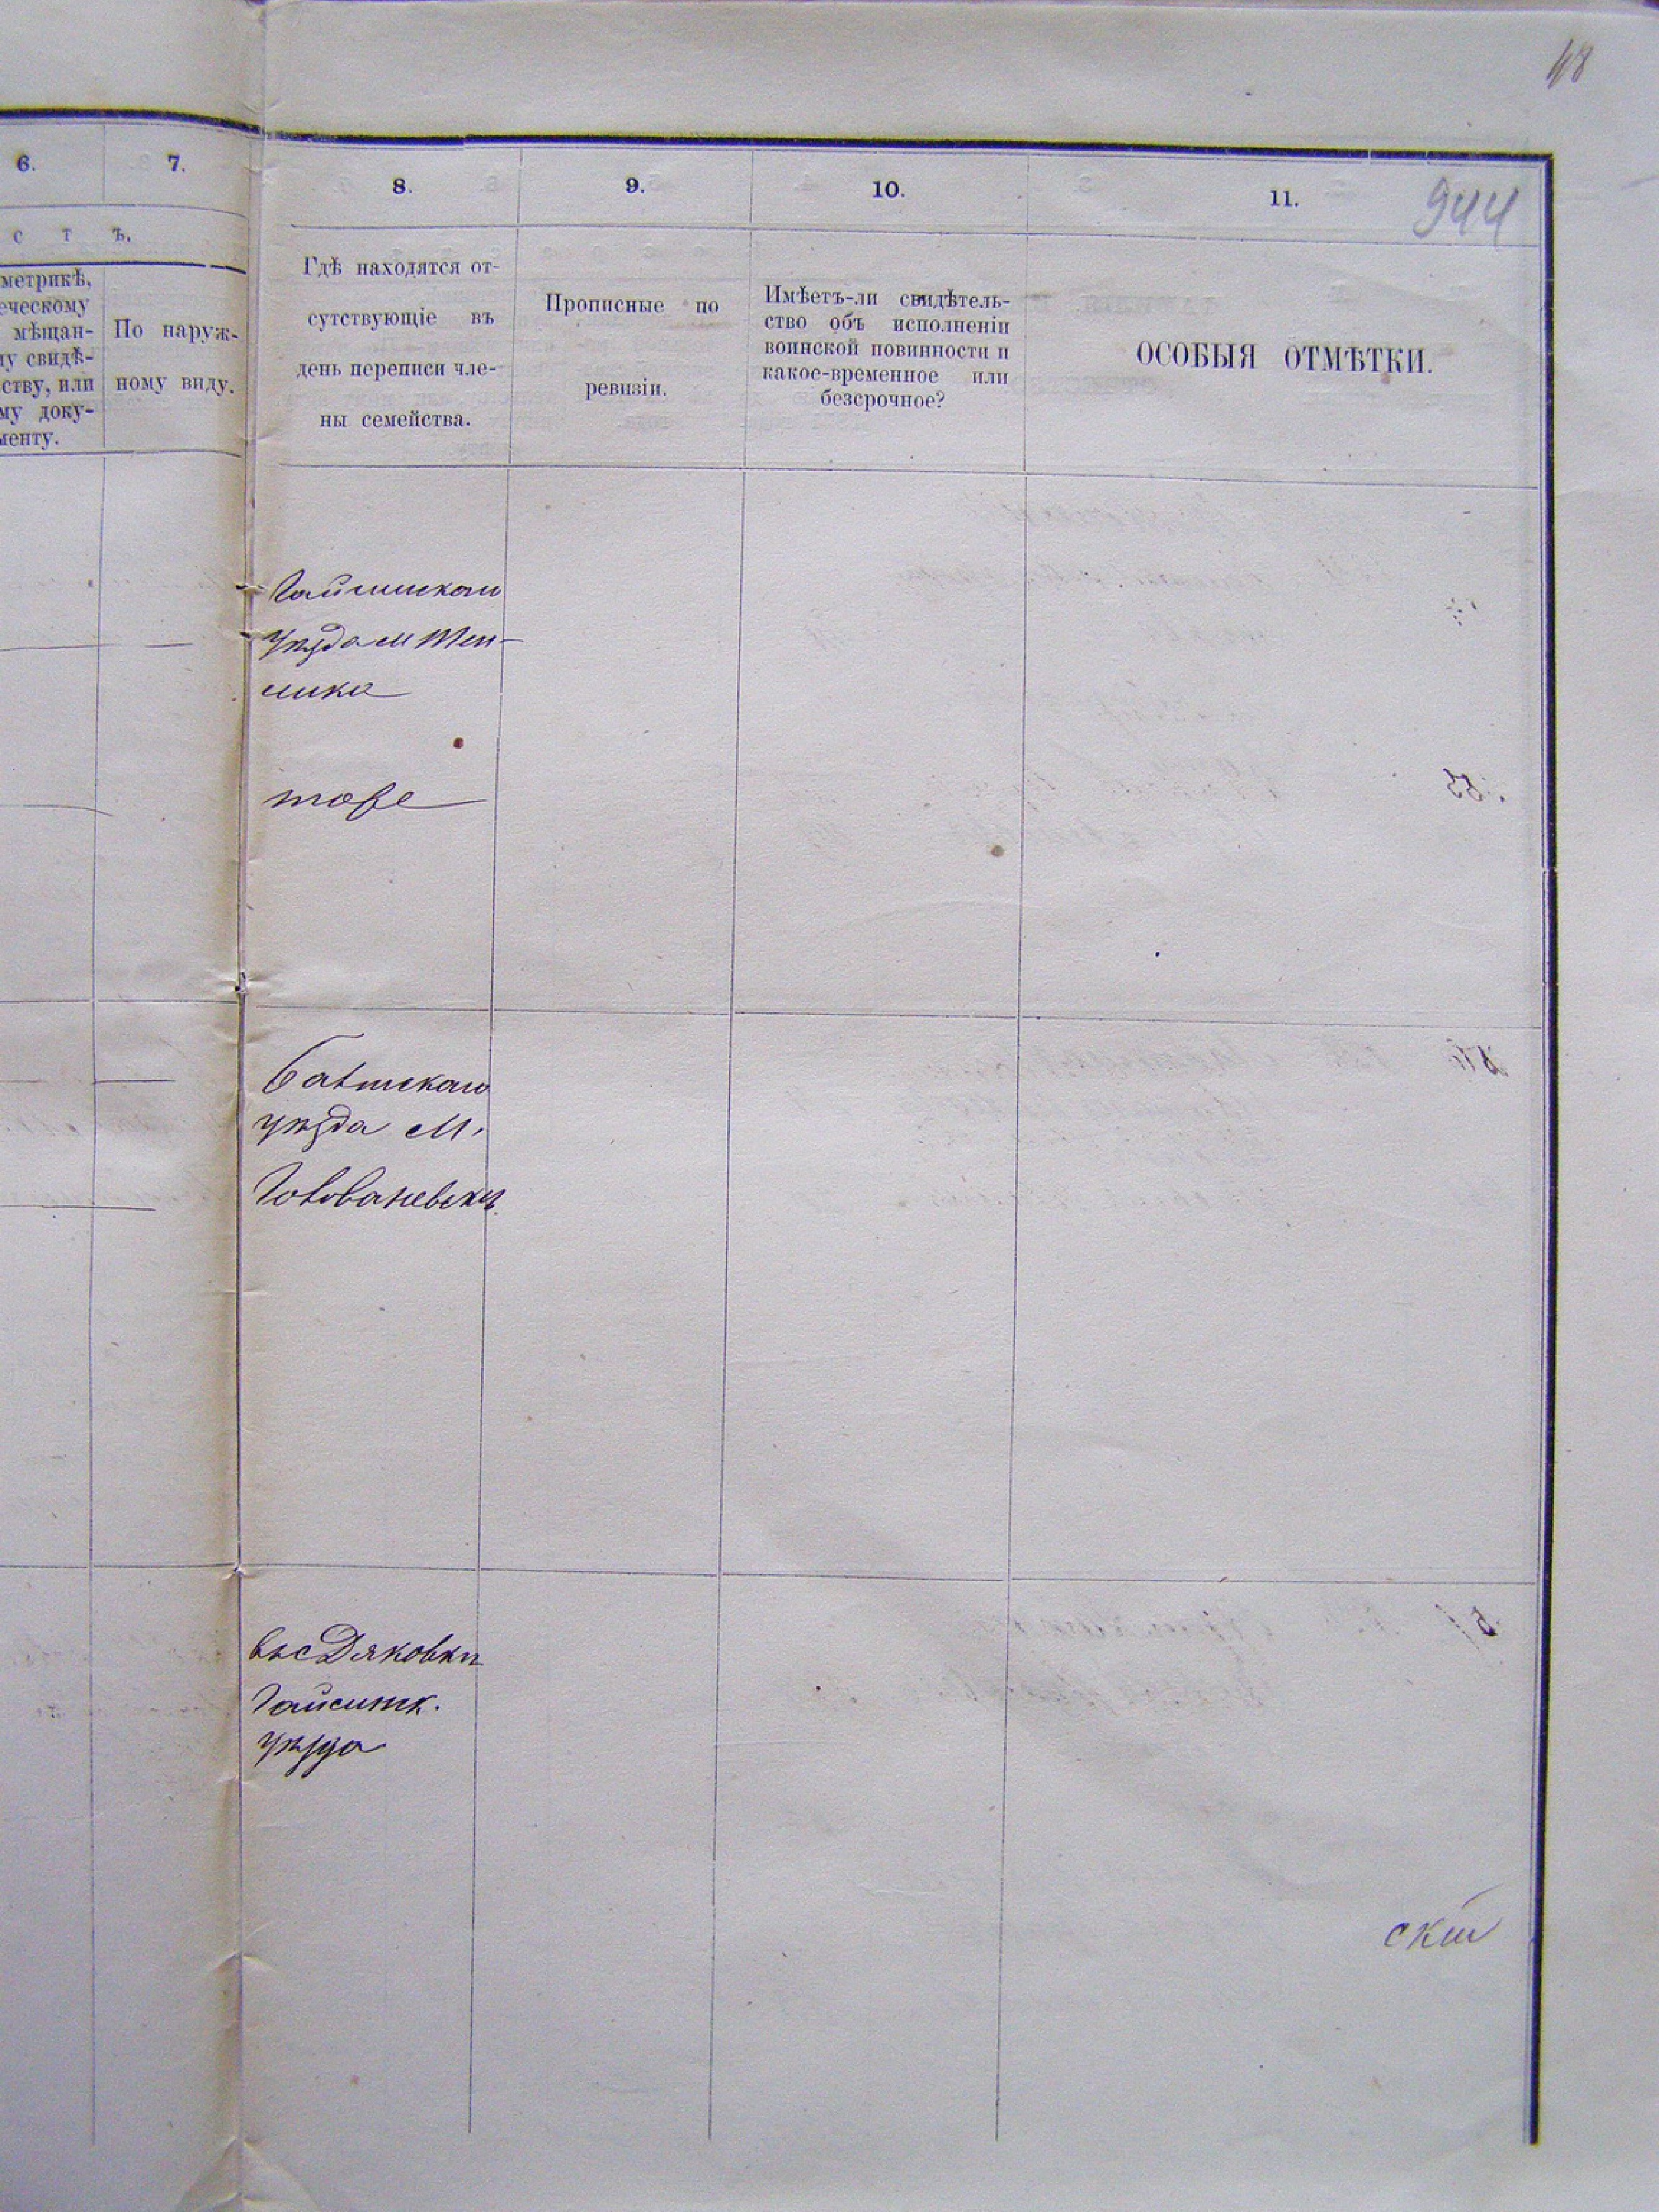 48
6.
7.
8.
9.
10.
11.
944
с т ъ.
метрикѣ,
еческому
мѣщан-
у свидѣ-
ству, или
му доку-
менту.
По наруж-
ному виду.
Гдѣ находятся от-
сутствующіе въ
день переписи чле-
ны семейства.
Прописные по
ревизіи.
Имѣетъ-ли свидѣтель-
ство объ исполненіи
воинской повинности и
какое-временное или
безсрочное?
ОСОБЫЯ ОТМѢТКИ.
Гайсинскаго
уѣзда м Теп-
лика
тоже
Балтскаго
уѣзда м.
Голованевскъ
въ с Дяковки
Гайсинск.
уѣзда